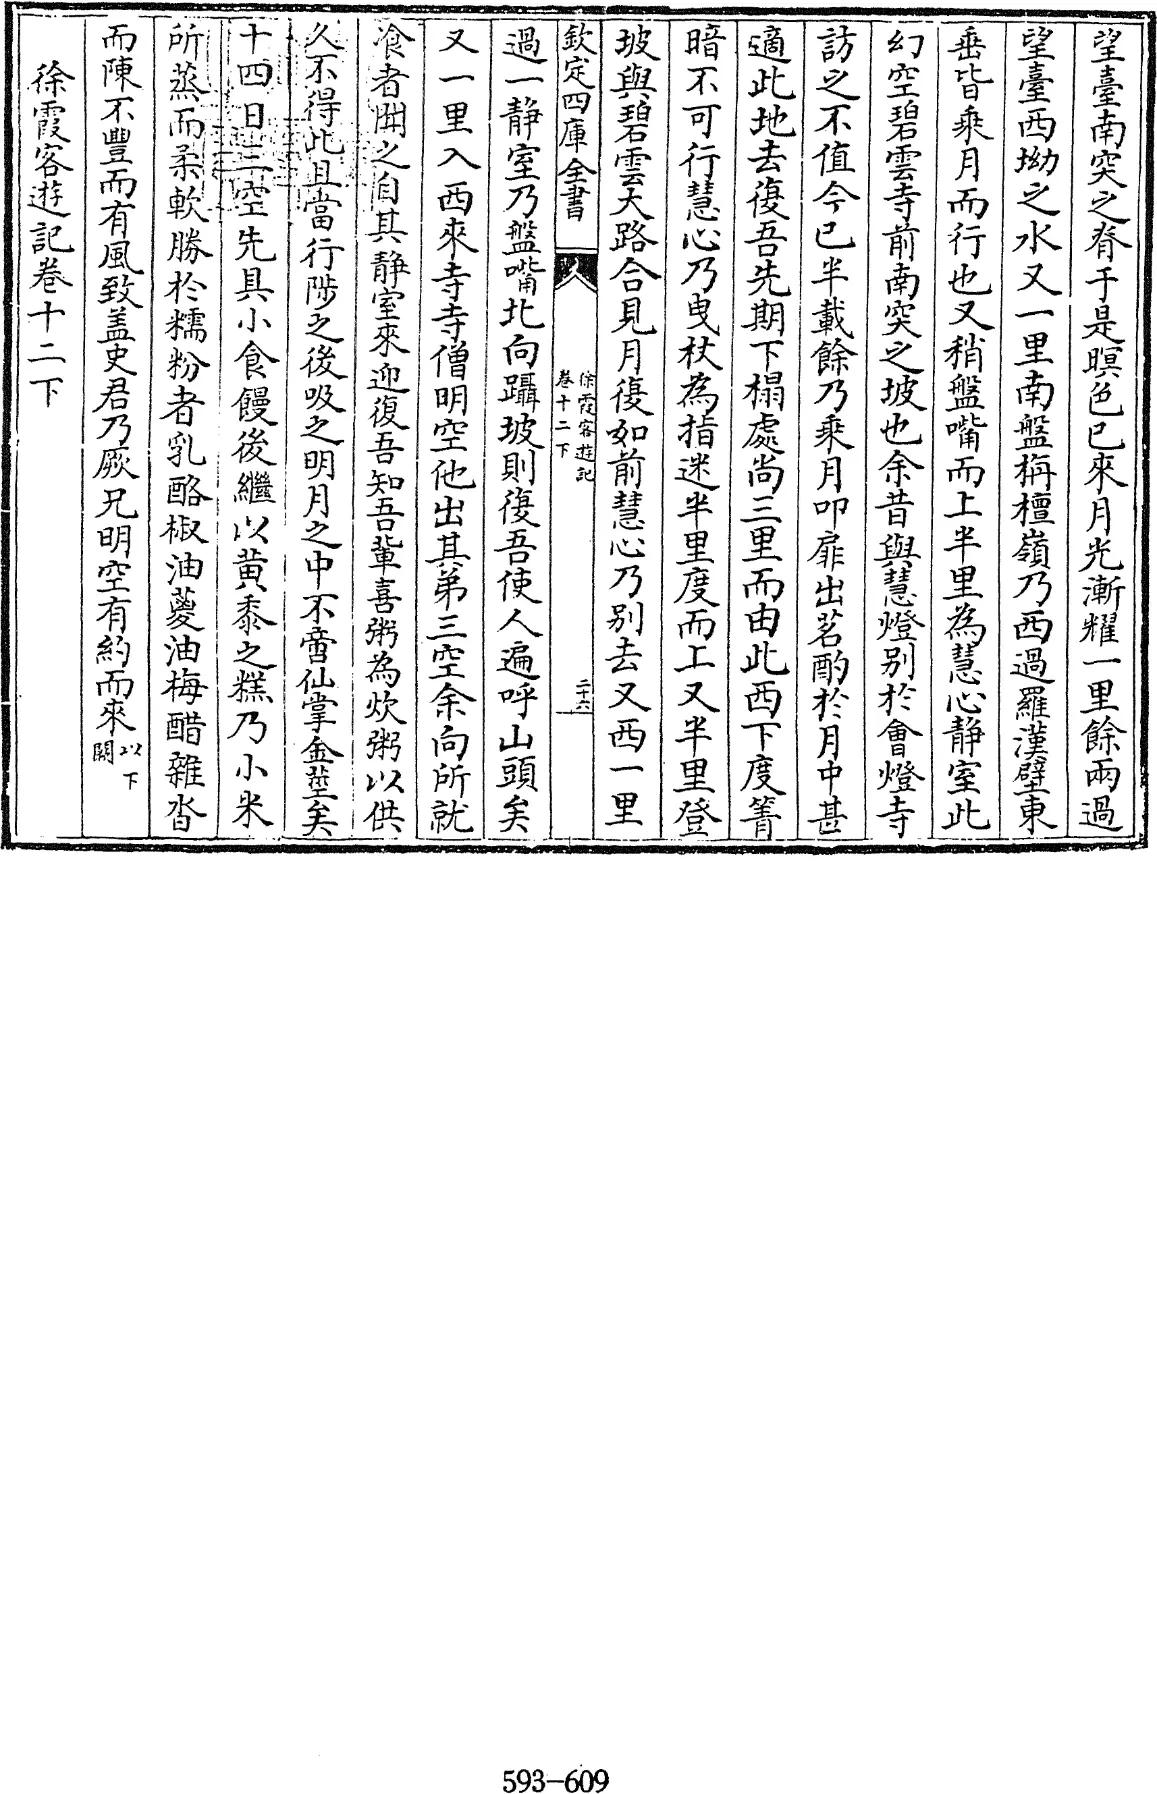 望臺南突之脊于是暝色已來月光漸耀一里餘兩過
望臺西坳之水又一里南盤栴檀嶺乃西過羅漢壁東
垂皆乘月而行也又稍盤嘴而上半里為慧心静室此
幻空碧雲寺前南突之坡也余昔與慧燈别於會燈寺
訪之不值今已半載餘乃乘月叩扉出茗酌於月中甚
適此地去復吾先期下榻處尚三里而由此西下度箐
暗不可行慧心乃曳杖為指迷半里度而上又半里登
坡與碧雲大路合見月復如前慧心乃别去又西一里
欽定四庫全書
徐霞客遊記
卷十二下
二十六
過一静室乃盤嘴北向躡坡則復吾使人遍呼山頭矣
又一里入西來寺寺僧明空他出其弟三空余向所就
飡者聞之自其静室來迎復吾知吾輩喜粥為炊粥以供
久不得此且當行陟之後吸之明月之中不啻仙掌金莖矣
十四日三空先具小食饅後繼以黄黍之糕乃小米
所蒸而柔軟勝於糯粉者乳酪椒油蔆油梅醋雜沓
而陳不豐而有風致盖史君乃厥兄明空有約而來以下闕
徐霞客遊記卷十二下
593-609